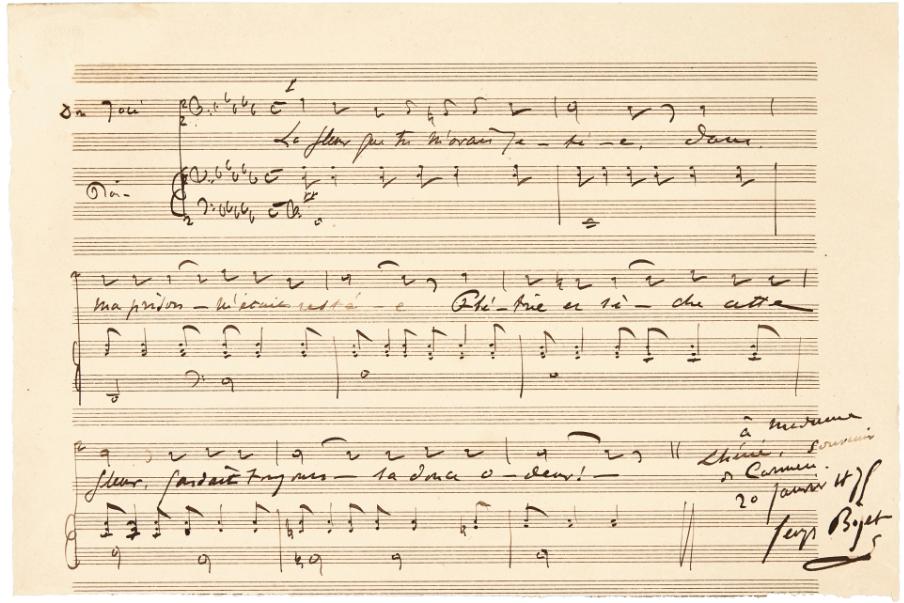 Don José
La fleur que tu m'avais je-té-e, dans
Pia-
ma prison - m'était resté-e Flé-trie et sè-che cette
fleur, gardait toujours - sa douce o-deur! -
à Madame
Lhérie, souvenir
de Carmen.
20 janvier 1875
Georges Bizet